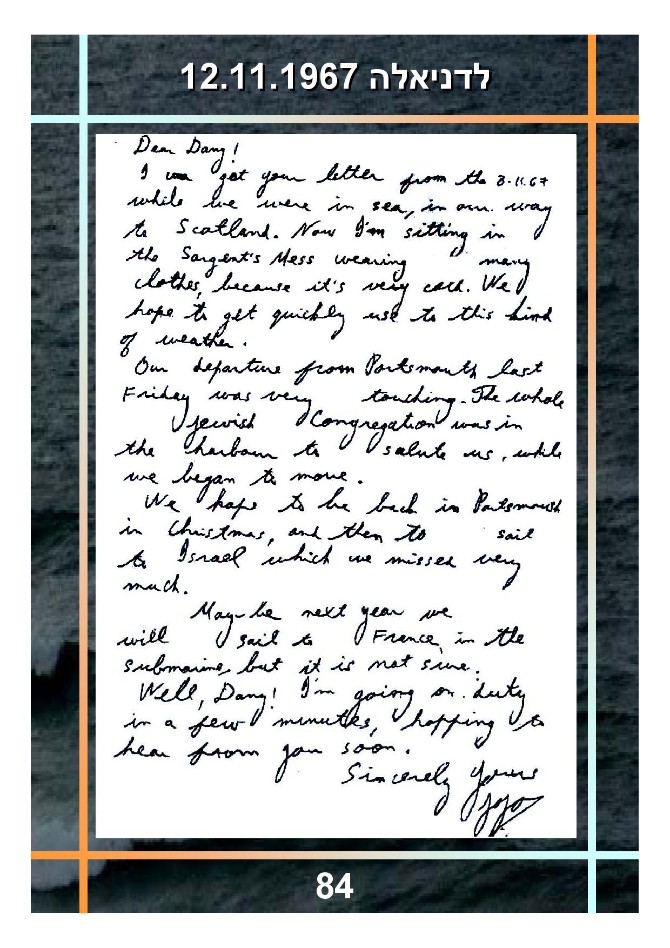 לדניאלה 12.11.1967
Dear Dany!
I got your letter from the 3-11.67
while we were in sea, in our way
to Scotland. Now I'm sitting in
the Sargent's Mess wearing many
clothes, because it's very cold. We
hope to get quickly use to this kind
of weather.
Our departure from Portsmouth last
Friday was very touching. The whole
Jewish Congregation was in
the harbour to salute us, while
we began to move.
We hope to be back in Portsmouth
in Christmas, and then to sail
to Israel which we missed very
much.
May-be next year we
will sail to France, in the
submarine, but it is not sure.
Well, Dany! I'm going on duty
in a few minutes, hopping to
hear from you soon.
Sincerely Yours
84